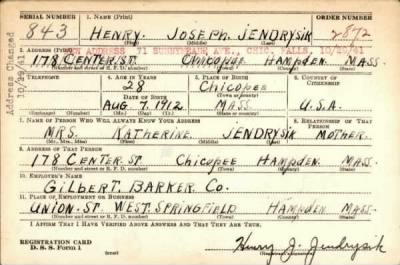 SERIAL NUMBER 1. NAME (Print) ORDER NUMBER
843 HENRY JOSEPH JENDRYSIK 2872
(First) (Middle) (Last)
NEW ADDRESS 71 SUNNYMEADE AVE., CHIC. FALLS, 10/29/41
2. ADDRESS (Print)
178 CENTER ST. CHICOPEE HAMPDEN MASS.
(Number and street or R. F. D. number) (Town) (County) (State)
Address Changed
10/29/41
3. TELEPHONE 4. AGE IN YEARS 5. PLACE OF BIRTH 6. COUNTRY OF CITIZENSHIP
28 Chicopee
DATE OF BIRTH (Town or county)
AUG. 7, 1912 MASS. U.S.A.
(Exchange) (Number) (Mo.) (Day) (Yr.) (State or country)
7. NAME OF PERSON WHO WILL ALWAYS KNOW YOUR ADDRESS 8. RELATIONSHIP OF THAT PERSON
MRS. KATHERINE JENDRYSIK MOTHER.
(Mr., Mrs., Miss) (First) (Middle) (Last)
9. ADDRESS OF THAT PERSON
178 CENTER ST. Chicopee HAMPDEN MASS.
(Number and street or R. F. D. number) (Town) (County) (State)
10. EMPLOYER'S NAME
GILBERT BARKER Co.
11. PLACE OF EMPLOYMENT OR BUSINESS
UNION-ST. WEST SPRINGFIELD HAMPDEN MASS.
(Number and street or R. F. D. number) (Town) (County) (State)
I AFFIRM THAT I HAVE VERIFIED ABOVE ANSWERS AND THAT THEY ARE TRUE.
REGISTRATION CARD
D. S. S. Form 1 Henry J. Jendrysik